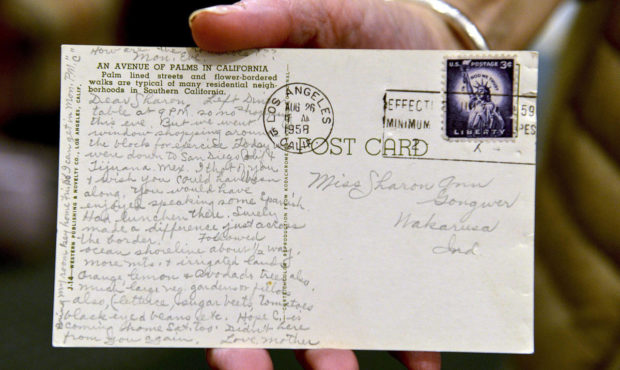 How are the
Mon. Eve.
AN AVENUE OF PALMS IN CALIFORNIA
Palm lined streets and flower-bordered
walks are typical of many residential neigh-
borhoods in Southern California.
Dear Sharon, Left
table at 8 P.M. so no
this eve. But we went
window shopping around
the block for exercise. Today we
were down to San Diego &
Tijuana, Mex. I thot of you
& wish you could have been
along. You would have
enjoyed speaking some Spanish.
Had luncheon there. Surely
made a difference just across
the border. Followed
ocean shoreline about 1/2 way.
more mts. & irrigated land &
orange lemon & avocado trees also.
much large veg. gardens or fields
also, lettuce sugar beets, tomatoes
black-eyed beans, etc. Hope C. is
coming home Sat. too. Didn't hear
from you again. Love, Mother
Bring my room key home Fri.
J.18—WESTERN PUBLISHING & NOVELTY CO., LOS ANGELES, CALIF.
REPRODUCTION FROM KODACHROME
LOS ANGELES
AUG 26
1958
CALIF.
15
EFFECTI
MINIMUM
59
PES
U.S. POSTAGE 3¢
IN GOD WE TRUST
LIBERTY
POST CARD
Miss Sharon Ann
Gongwer
Wakarusa
Ind